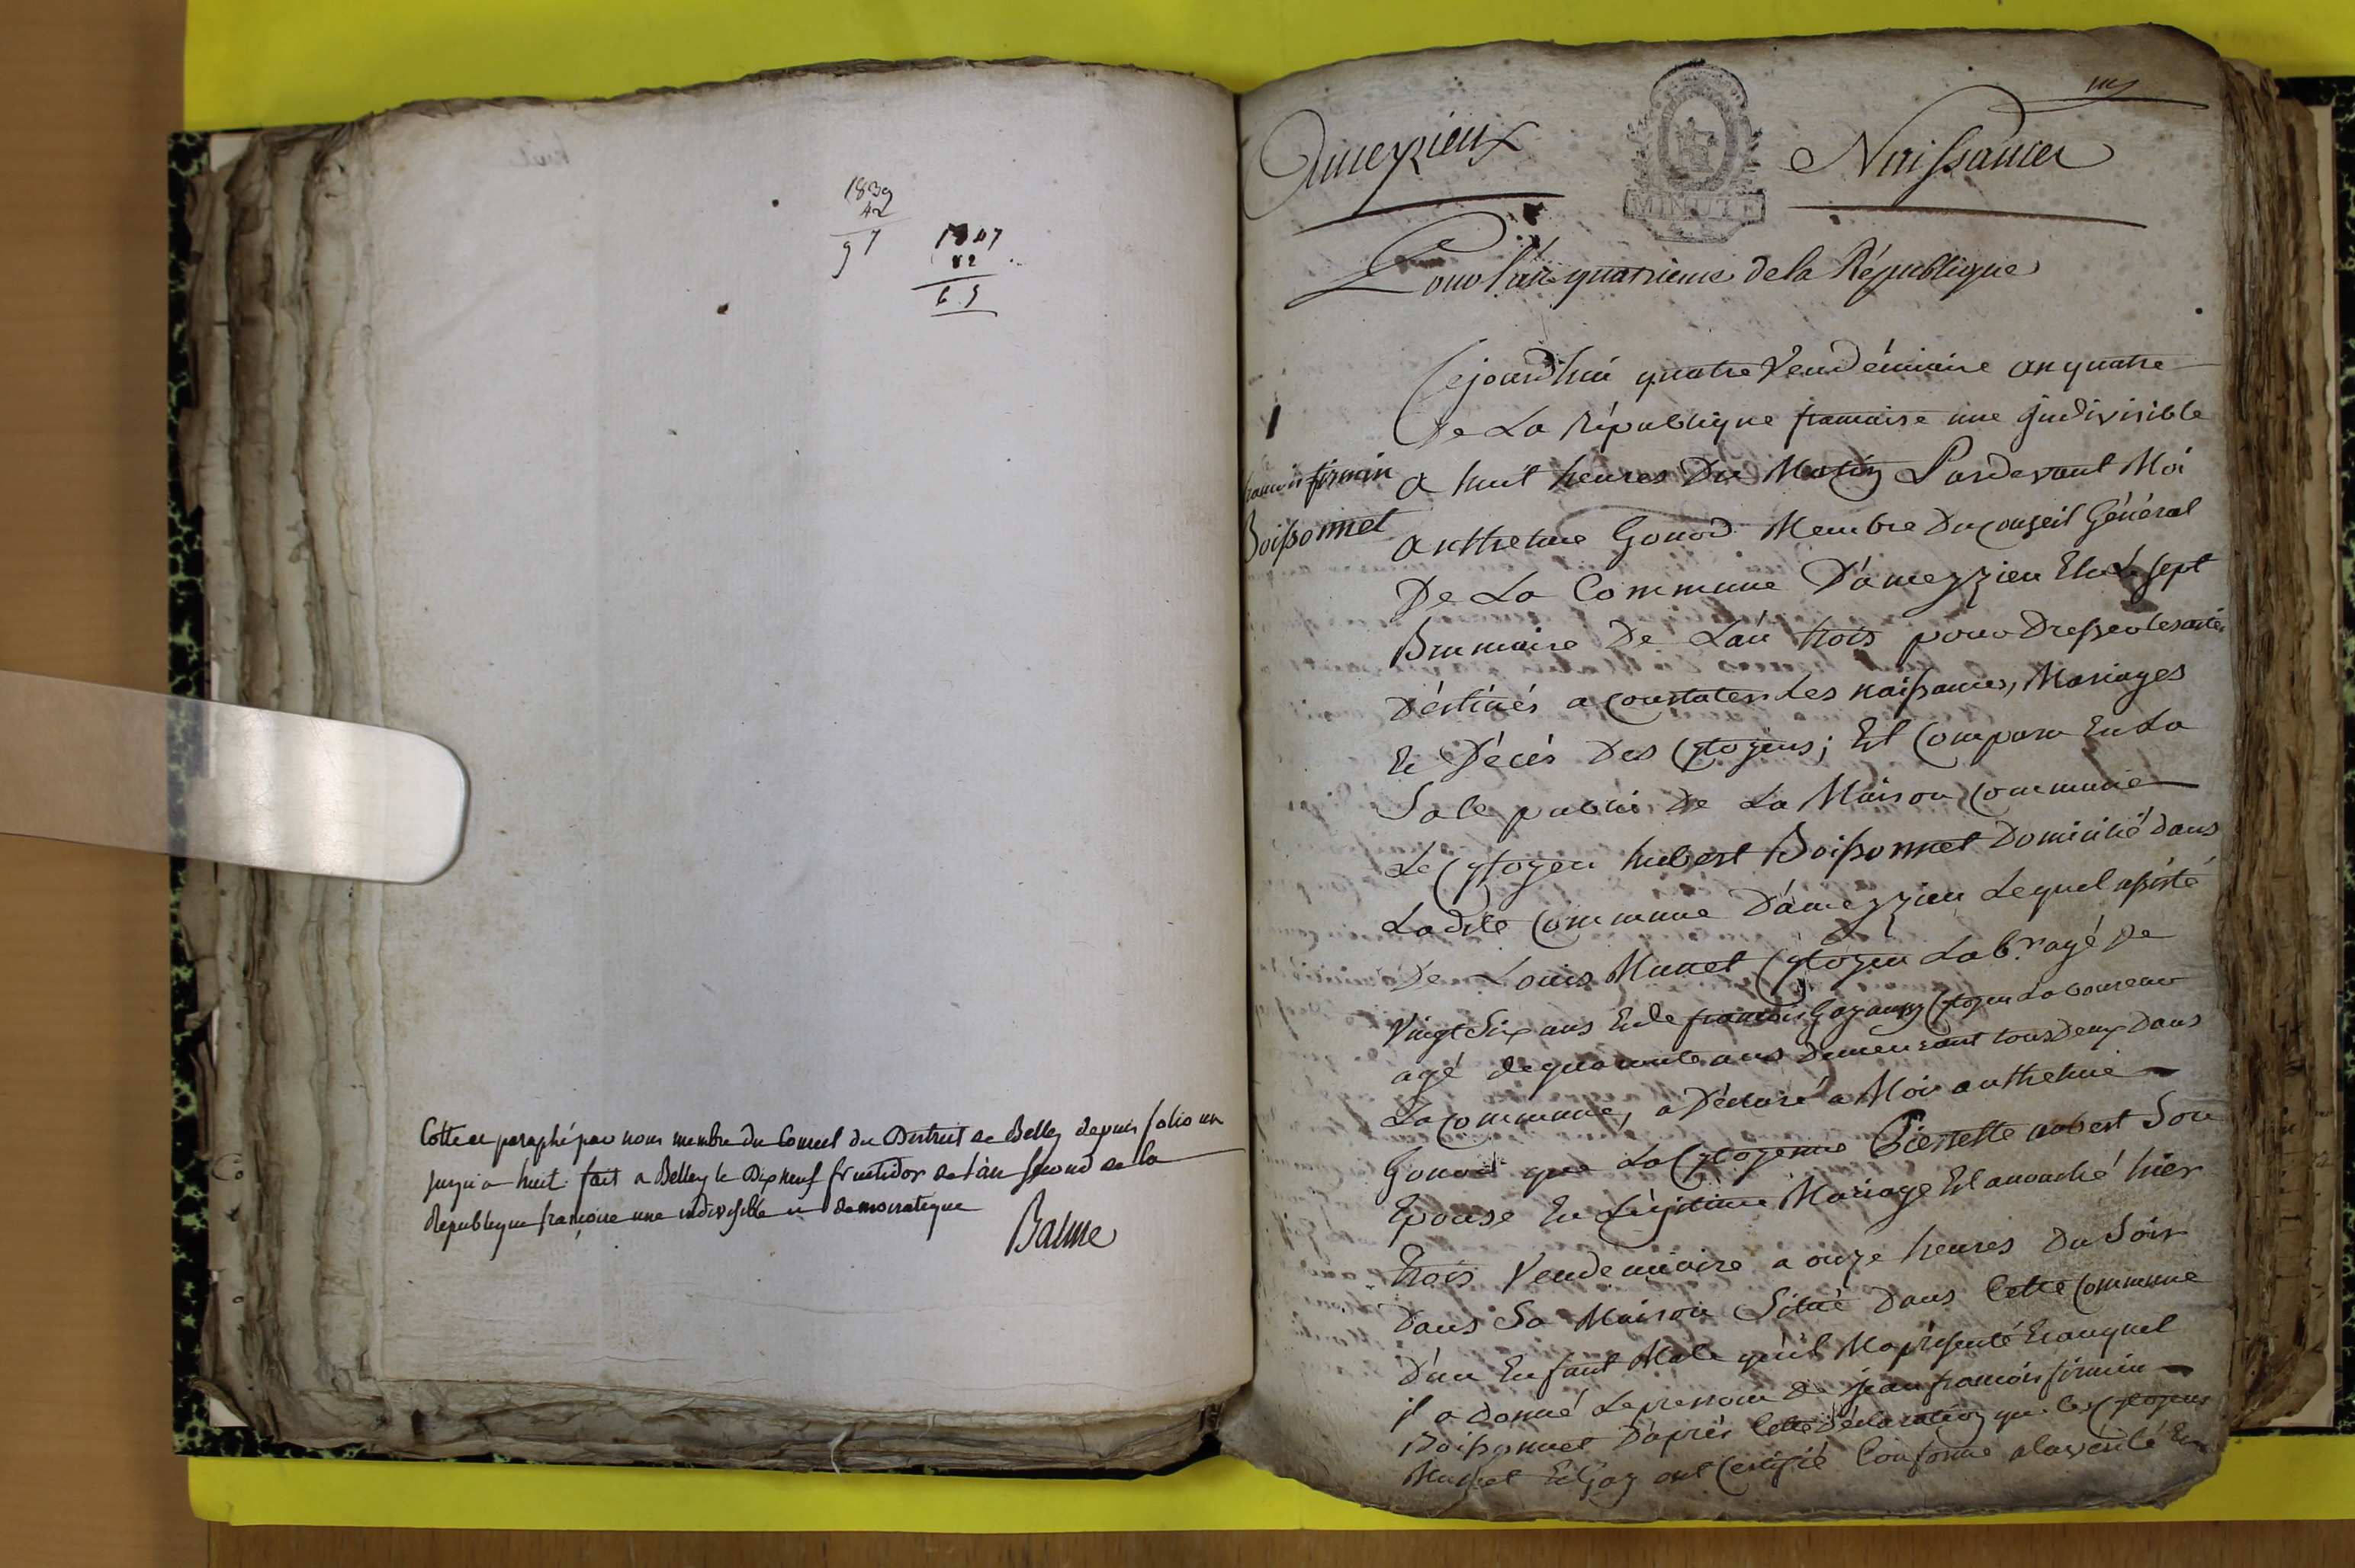 1839
42
97
1847
82
65
Cotté et paraphé par nous membre du Conseil du District de Belley depuis folio un
jusqu'a huit. fait a Belley le Dix neuf fructidor de l'an second de la
Republique françoise une indivisible et democratique
Balme
Ameyzieux
MINUTE
Naissances
Pour l'an quatrieme de la République
Cejourd'hui quatre Vendémiaire an quatre
De La République francaise une indivisible
1
francois firmin
Boissonnet
a huit heures Du Matin Pardevant Moi
anthelme Gonod Membre Du Conseil Général
De La Commune D'ameyzieu Elu Le sept
Brumaire De Lan trois pour Dresser les actes
Déstinés a Constater Les naissances, Mariages
Et Décés Des Cytoyens; Est Comparu En La
Sale public De La Maison Commune
Le Cytoyen hubert Boissonnet Domicilié dans
Ladite Commune D'ameyzieu Lequel assisté
De Louis Munet Cytoyen Lab.r agé De
Vingt Six ans Et de francois Cytoyen Laboureur
agé de quarante ans Demeurant tous Deux Dans
La Commune, a Déclaré a Moi anthelme
Gonod que La Cytoyenne Pierrette aubert Son
Epouse En Légitime Mariage Est accouché hier
trois Vendemiaire a onze heures Du Soir
Dans Sa Maison Situé Dans Cette Commune
D'un Enfant Male qu'il Ma présenté Et auquel
il a donné Le prenom De jean francois firmin
Boissonnet D'après Cette Déclaration que les Cytoyens
Munet Et Goy ont Certifié Conforme a la vérité Et